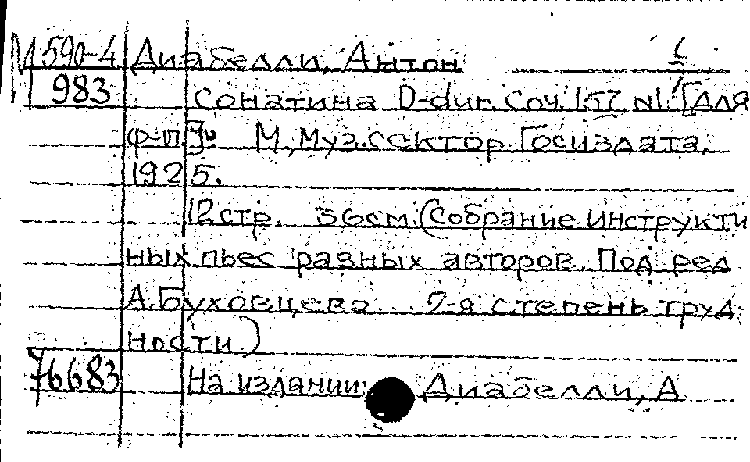 М 590-4 Диабелли, Антон
983 Сонатина D-dur. Соч. 157 N1. [Для
ф-п.]. М., Муз. сектор Госиздата,
1925.
12 стр. 36 см. (Собрание инструкти
ных пьес разных авторов. Под ред
А. Буховцева. 2-я степень труд
ности.)
76683 На издании: Диабелли, А